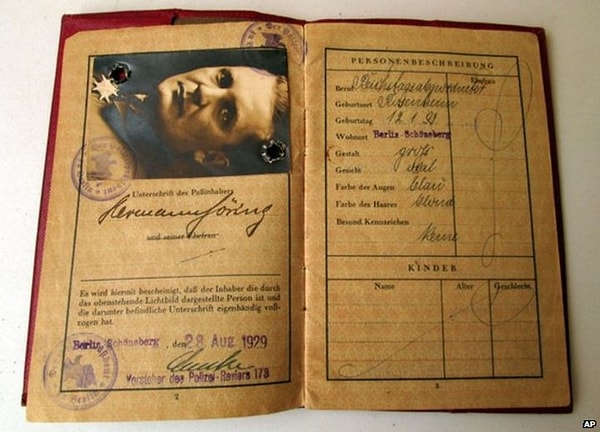 Unterschrift des Paßinhabers
Hermann Göring
und seiner Ehefrau
Es wird hiermit bescheinigt, daß der Inhaber die durch
das obenstehende Lichtbild dargestellte Person ist und
die darunter befindliche Unterschrift eigenhändig voll-
zogen hat.
Berlin-Schöneberg, den 28 AUG 1929
Vorsteher des Polizei-Reviers 173
2
PERSONENBESCHREIBUNG
Ehefrau
Beruf Reichstagsabgeordneter
Geburtsort Rosenheim
Geburtstag 12.1.93
Wohnort Berlin-Schöneberg
Gestalt groß
Gesicht oval
Farbe der Augen blau
Farbe des Haares blond
Besond. Kennzeichen
Keine
KINDER
Name Alter Geschlecht
3
AP